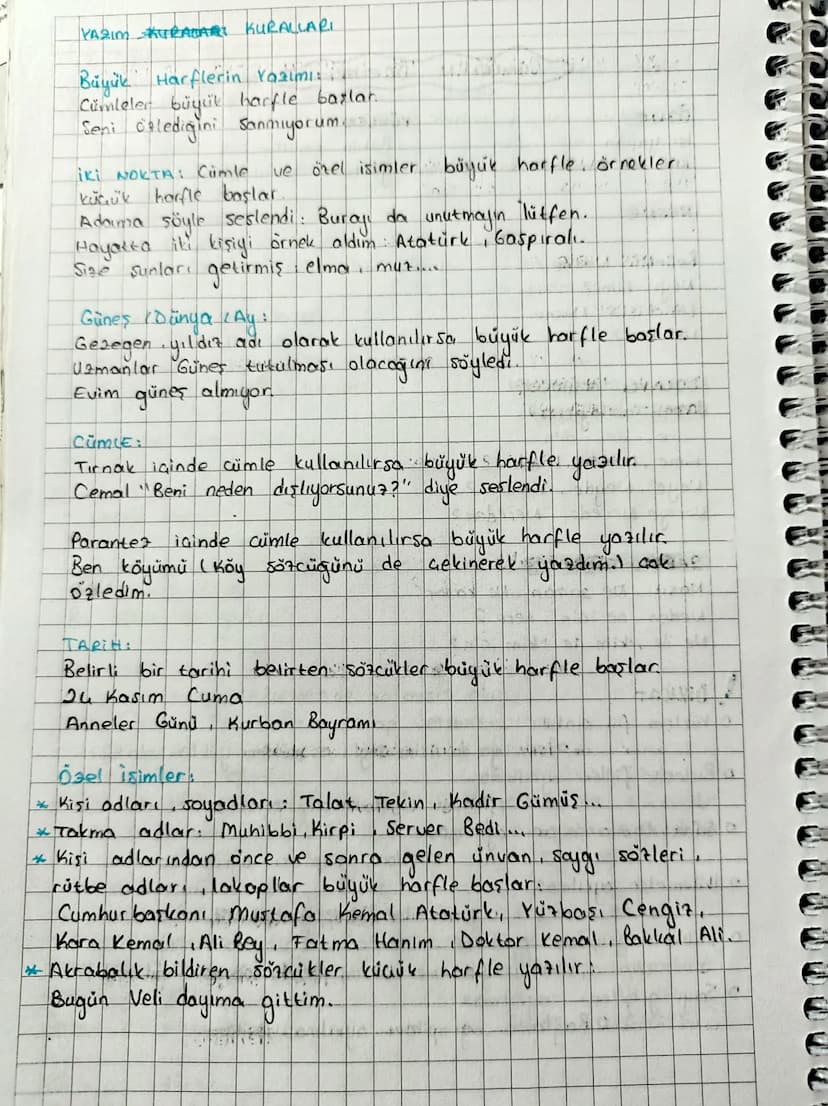 YAZIM KURALLARI
Büyük Harflerin Yazımı:
Cümleler büyük harfle başlar.
Seni özlediğini sanmıyorum.
İKİ NOKTA: Cümle ve özel isimler büyük harfle, örnekler
küçük harfle başlar.
Adama şöyle seslendi: Burayı da unutmayın lütfen.
Hayatta iki kişiyi örnek aldım: Atatürk, Gaspıralı.
Size şunları getirmiş: elma, muz....
Güneş, Dünya, Ay:
Gezegen, yıldız adı olarak kullanılırsa büyük harfle başlar.
Uzmanlar Güneş tutulması olacağını söyledi.
Evim güneş almıyor.
CÜMLE:
Tırnak içinde cümle kullanılırsa büyük harfle yazılır.
Cemal "Beni neden dışlıyorsunuz?" diye seslendi.
Parantez içinde cümle kullanılırsa büyük harfle yazılır.
Ben köyümü (Köy sözcüğünü de çekinerek yazdım.) çok
özledim.
TARİH:
Belirli bir tarihi belirten sözcükler büyük harfle başlar.
24 Kasım Cuma
Anneler Günü, Kurban Bayramı
Özel isimler:
* Kişi adları, soyadları: Talat Tekin, Kadir Gümüş...
* Takma adlar: Muhibbi, Kirpi, Server Bedi...
* Kişi adlarından önce ve sonra gelen ünvan, saygı sözleri,
rütbe adları, lakaplar büyük harfle başlar:
Cumhurbaşkanı Mustafa Kemal Atatürk, Yüzbaşı Cengiz,
Kara Kemal, Ali Bey, Fatma Hanım, Doktor Kemal, Bakkal Ali.
* Akrabalık bildiren sözcükler küçük harfle yazılır:
Bugün Veli dayıma gittim.